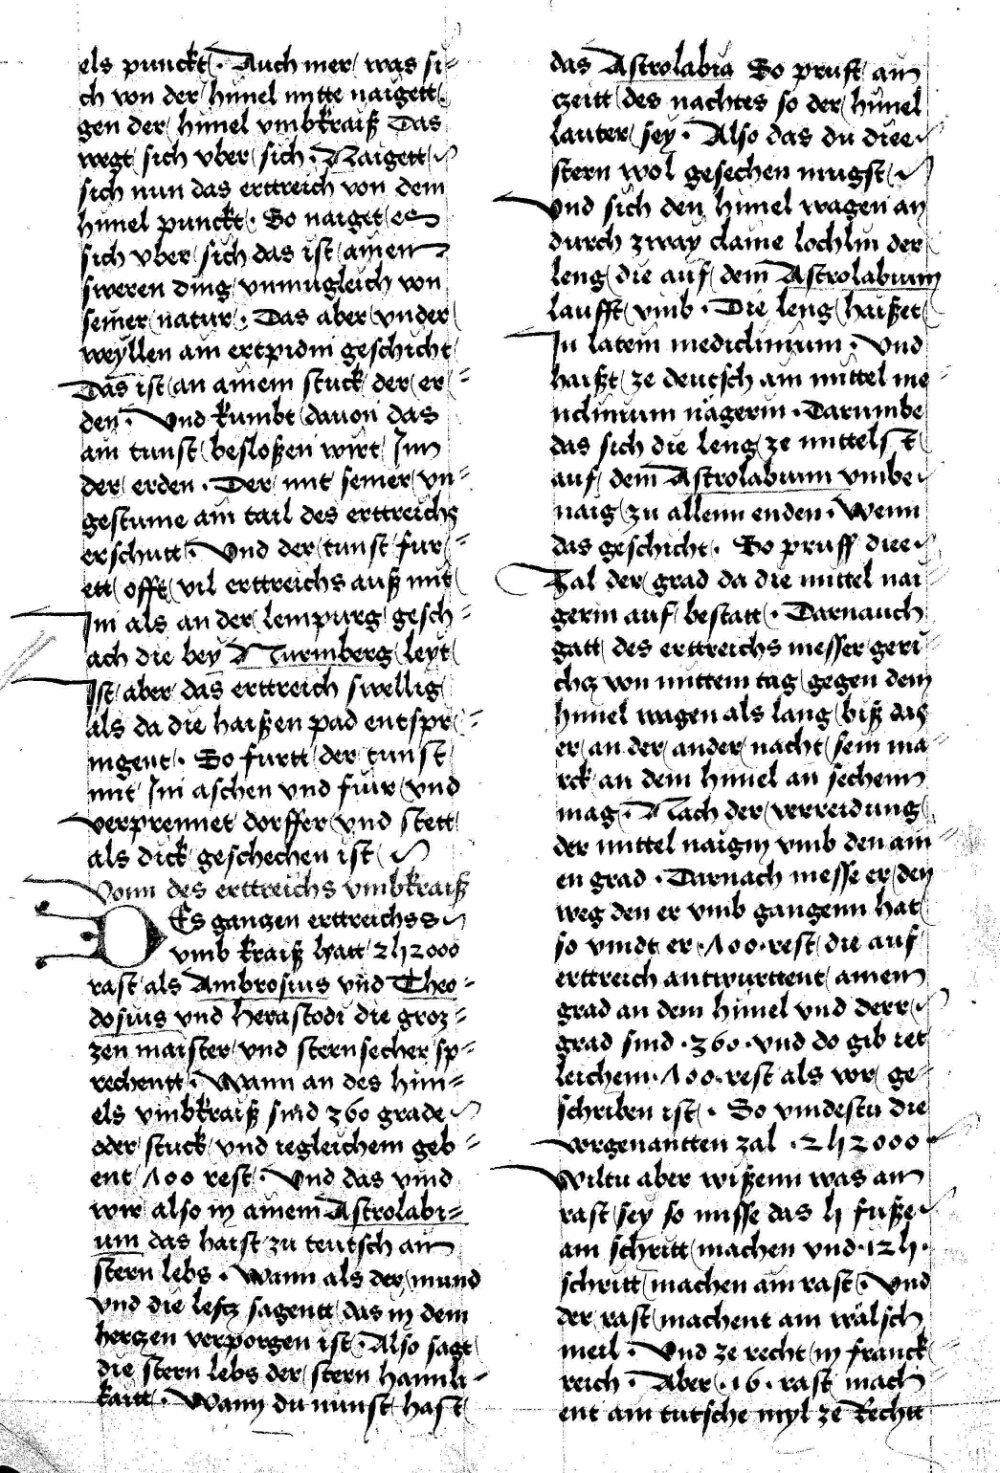 els punckt · Auch mer was si-
ch von der himel mitte naigett
gen der himel vmbkraiß Das
wegt sich vber sich · Naigett
sich nun das erttreich von dem
himel punckt · So naiget es
sich vber sich das ist ainem
sweren ding vnmugleich von
seiner natur · Das aber vnder
weyllen ain ertpidm geschicht
Das ist an ainem stuck der er-
den · Vnd kumbt dauon das
ain tunst besloßen wirt Jnn
der erden · Der mit seiner vn-
gestume ain tail des erttreichs
erschutt · Vnd der tunst fur-
ett offt vil erttreichs auß mit
Jm als an der lempurg gesch-
ach die bey Nurmberg leyt
Jst aber das erttreich swellig
als da die haißen pad entspr-
ingent · So furtt der tunst
mit Jm aschen vnd fiur vnd
verprennet dorffer vnd stett
als dick geschechen ist
Vonn des erttreichs vmbkraiß
Des ganzen erttreichss
vmb kraiß hatt 252000
rast als Ambrosius vnd Theo-
dosius vnd herastodi die groz-
zen maister vnd sternsecher sp-
rechentt · Wann an des him-
els vmbkraiß sind 360 grade
oder stuck vnd iegleichem geb-
ent 700 rest · Vnd das vind
wir also in ainem Astrolabi-
um das haist zu teutsch ain
stern lebs · Wann als der mund
vnd die lefcz sagentt das in dem
herczen verporgen ist · Also sagt
die stern lebs der stern haimli-
kaitt · Wann du nunst hast
das Astrolabia So pruft ain
czeitt des nachtes so der himel
lauter sey · Also das du diee
stern wol gesechen mugst
Vnd sich den himel wagen an
durch zway claine lochlin der
leng die auf dem Astrolabium
laufft vmb · Die leng haißet
Jn latein mediclinium · Vnd
haißt ze deutsch ain mittel me
nclinium nägerin · Darumbe
das sich die leng ze mittelst
auf dem Astrolabium vmbe
naig zu allenn enden · Wenn
das geschicht · So pruff diee
Zal der grad da die mittel nai-
gerin auf bestatt · Darnauch
gatt des erttreichs messer geri-
chcz von mittem tag gegen dem
himel wagen als lang biß das
er an der ander nacht sein ma-
rck an dem himel an sechenn
mag · Nach der verreidung
der mittel naigin vmb den ain
en grad · Darnach messe er den
weg den er vmb gangenn hat
so vindt er · 700 · rest die auf
erttreich antwurttent ainem
grad an dem himel vnd derr
grad sind · 360 · vnd do gib iet
leichem · 700 · rest als vor ge-
schriben ist · So vindestu die
vorgenantten zal · 252000
Wiltu aber wißenn was ain
rast sey so misse das 5 fuße
ain schritt machen vnd · 125 ·
schritt machen ain rast · Vnd
der rast machent ain wälsch
meil · Vnd ze recht in franck
reich · Aber · 16 · rast mach
ent ain tutsche myl ze Rechtt